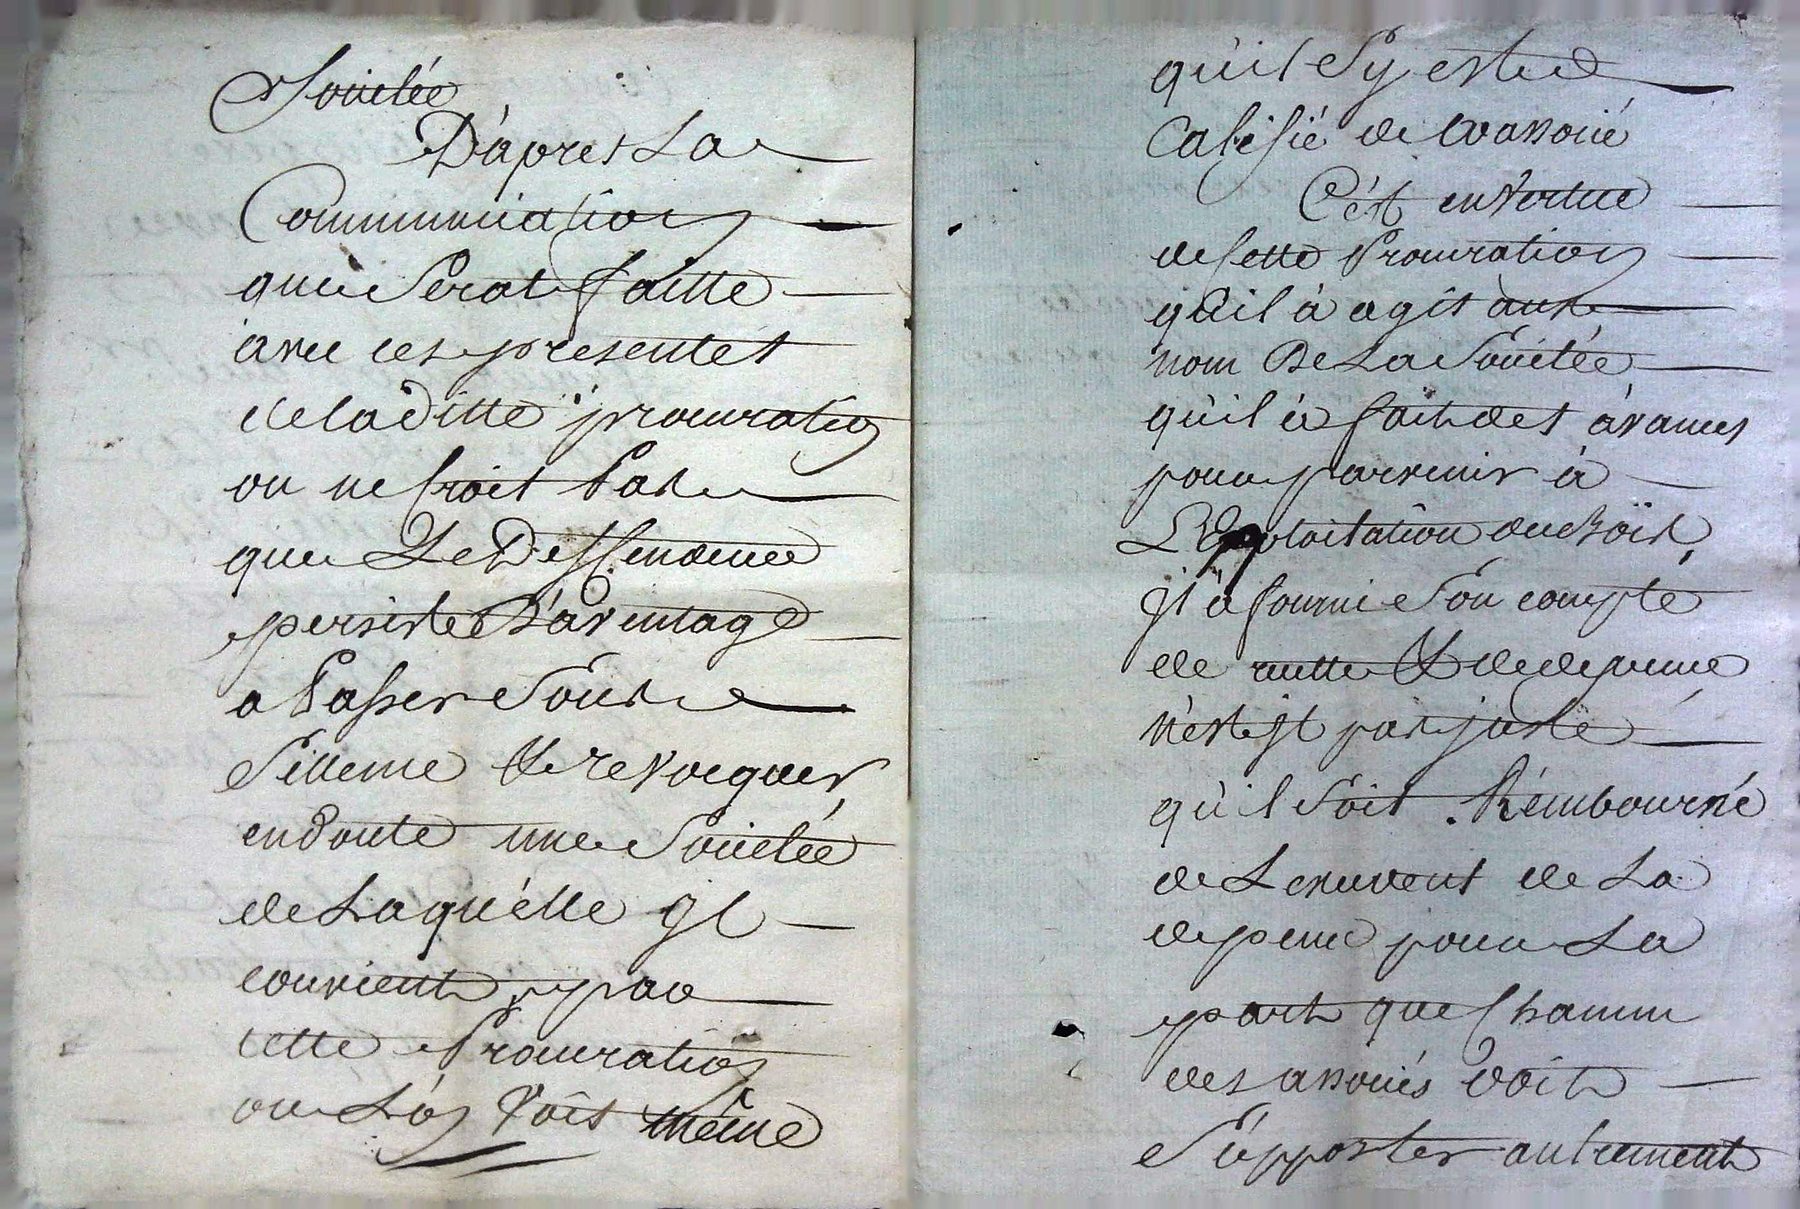 Societée
D'apres La
Communication
que Serat faitte
avec ces presentes
de laditte procuration
on ne Croit Pas
que Le Deffendeur
persiste D'aventage
a Passer Sous
Silence & revoquer
en doute une Societée
de Laquélle Il
convient par
cette Procuration
ou L'on Voit même
qu'il S'y est
Calífié de Coassocié
C'ést en Vertue
de Cette Procuration
qu'il à agit aux
nom De La Societée
qu'il à fait des àvances
pour parvenir à
L'Exploitation du Bois,
Il à fourni Son compte
de recette & de depence
n'est Il pas juste
qu'il Soit Rémboursé
de L'excedent de La
depence pour La
part que Chacun
des associés doit
Supporter autrement